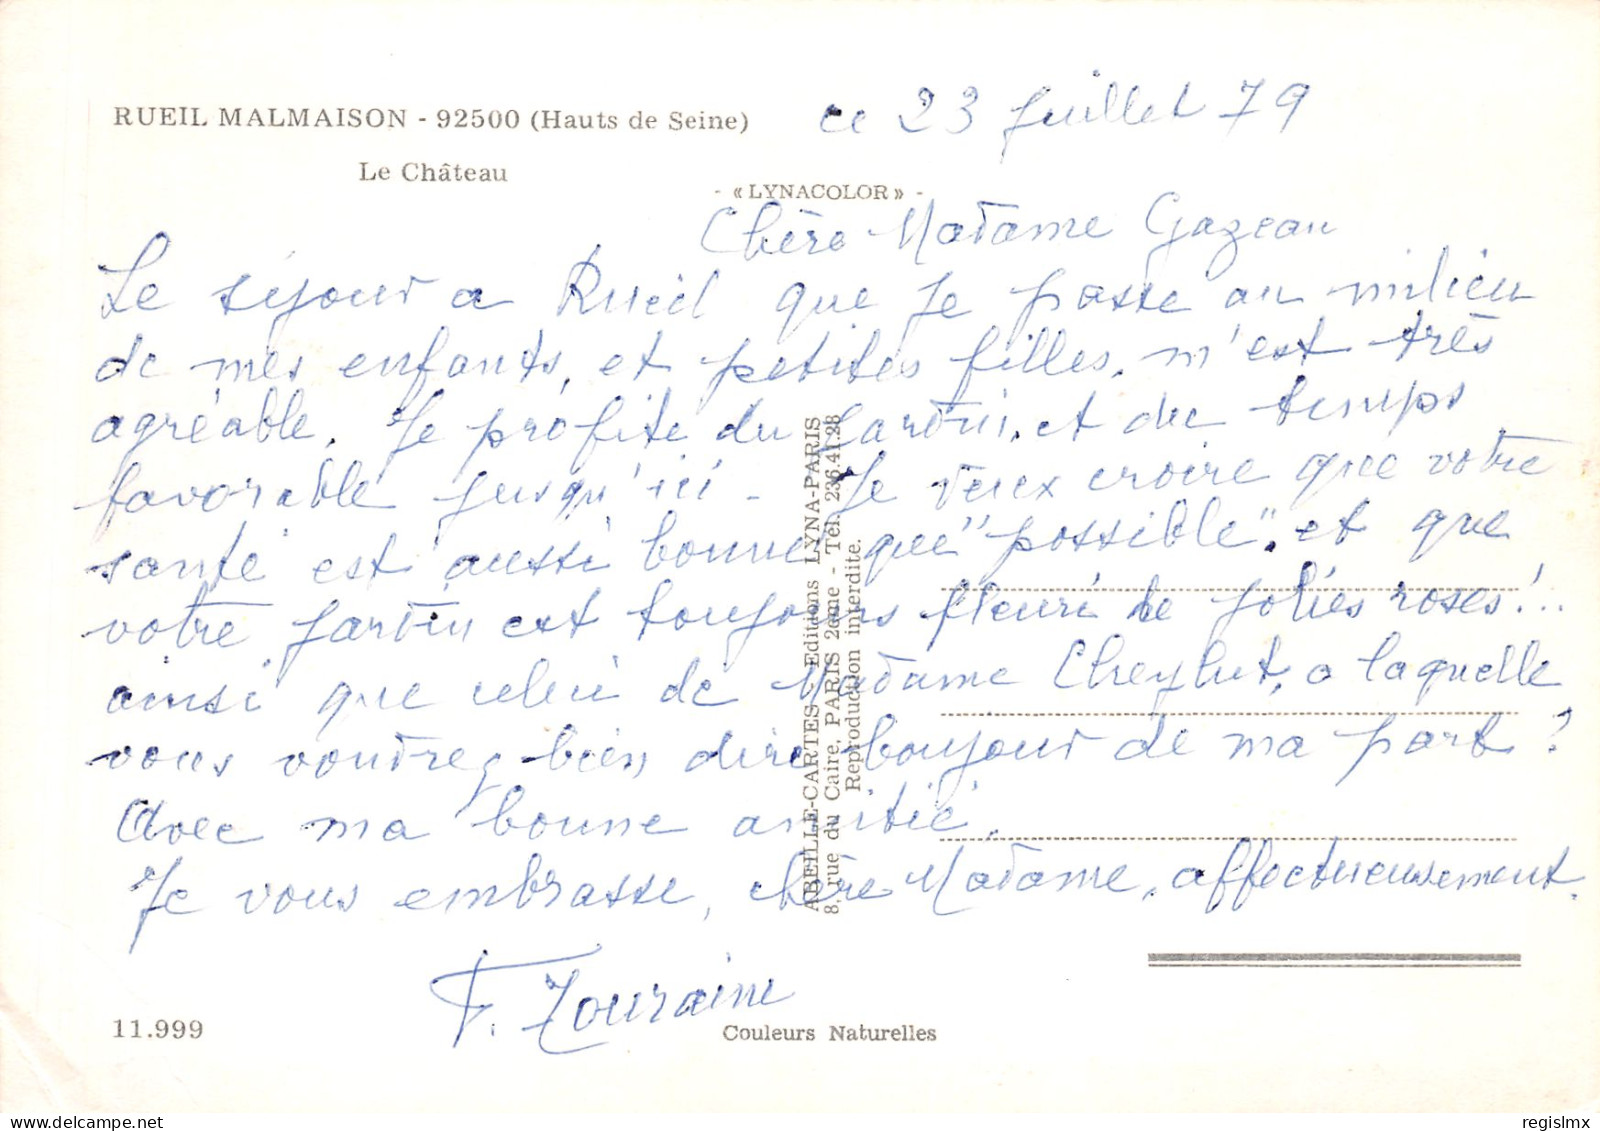 RUEIL MALMAISON - 92500 (Hauts de Seine)
Le Château
- « LYNACOLOR » -
ce 23 juillet 79
Chère Madame Gazeau
Le séjour a Rueil que je passe au milieu
de mes enfants, et petites filles, m'est très
agréable. Je profite du jardin, et du temps
favorable jusqu'ici - Je veux croire que votre
santé est aussi bonne que "possible", et que
votre jardin est toujours fleuri de jolies roses!..
ainsi que celui de Madame a laquelle
vous voudrez bien dire bonjour de ma part?
Avec ma bonne amitié.
Je vous embrasse, chère Madame, affectueusement.
F. Touraine
ABEILLE-CARTES - Editions LYNA-PARIS
8, rue du Caire, PARIS 2ème - Tél. 236.41.28
Reproduction interdite.
11.999
Couleurs Naturelles
regislmx